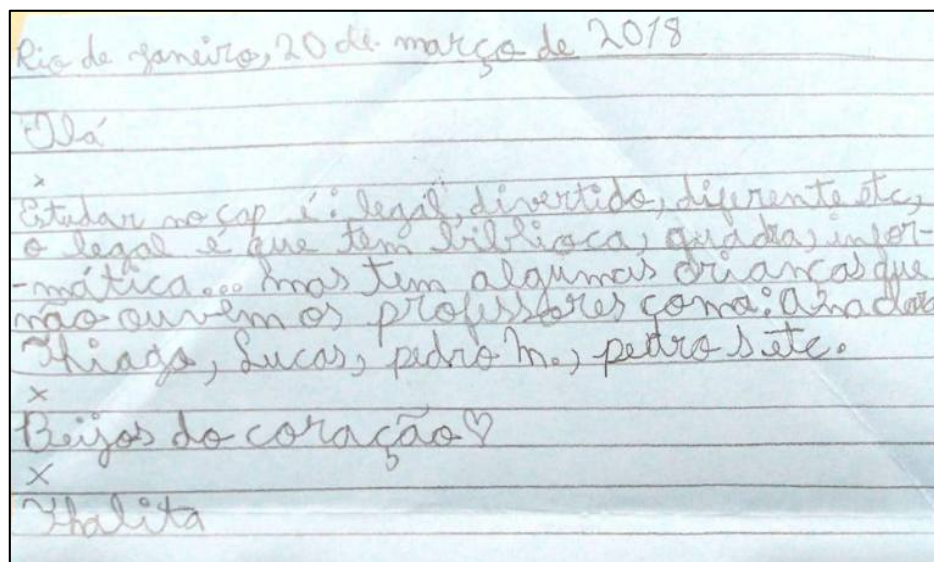 Rio de janeiro, 20 de março de 2018
Olá
x
Estudar no cap é: legal, divertido, diferente etc,
o legal é que tem bibliioca, quadra, infor-
-mática... mas tem algumas crianças que
não ouvem os professores como:
Thiago, Lucas, pedro m., pedro s etc.
x
Beijos do coração♡
x
Thalita